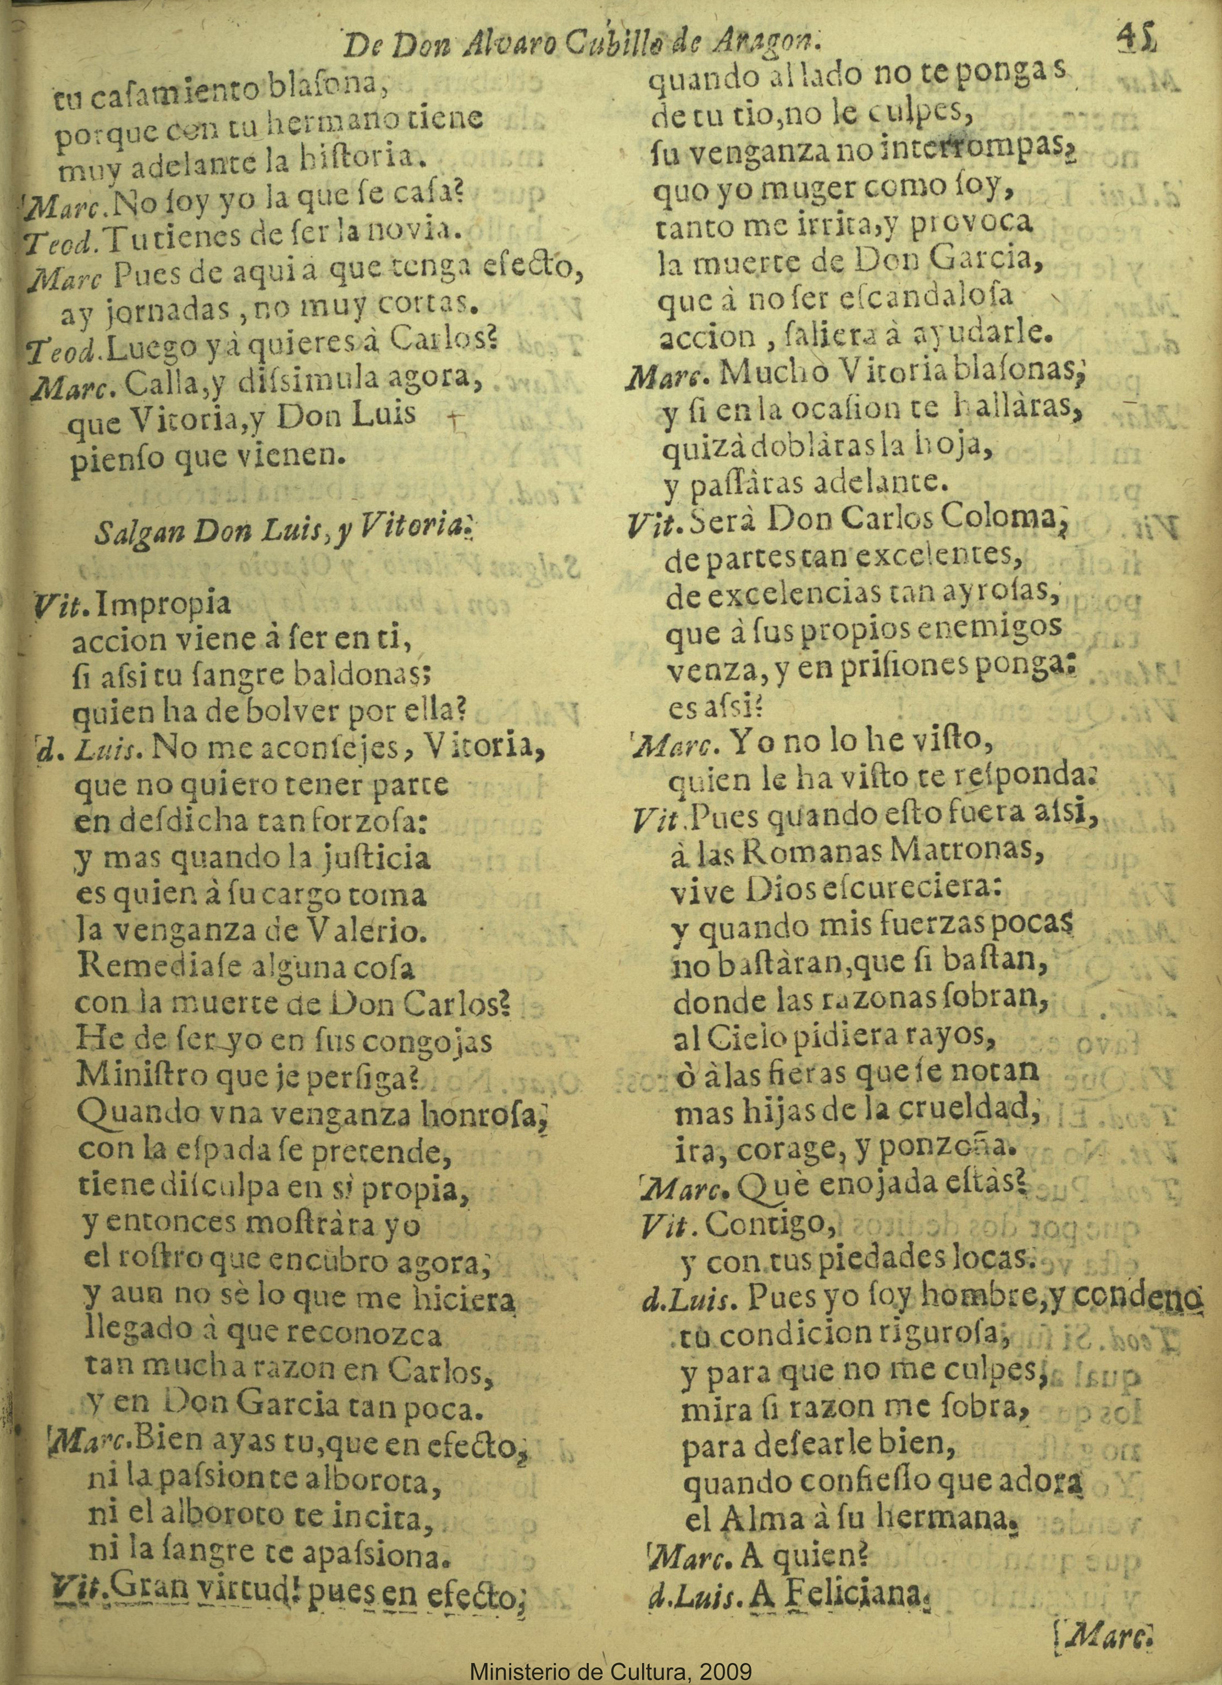 De Don Alvaro Cubillo de Aragon. 45
tu casamiento blaſona,
porque con tu hermano tiene
muy adelante la hiſtoria.
Marc. No ſoy yo la que ſe caſa?
Teod. Tu tienes de ſer la novia.
Marc Pues de aqui à que tenga efecto,
ay jornadas, no muy cortas.
Teod. Luego yà quieres à Carlos?
Marc. Calla, y diſsimula agora,
que Vitoria, y Don Luis
pienſo que vienen.
Salgan Don Luis, y Vitoria.
Vit. Impropia
accion viene à ſer en ti,
ſi aſsi tu ſangre baldonas;
quien ha de bolver por ella?
d. Luis. No me aconſejes, Vitoria,
que no quiero tener parte
en deſdicha tan forzoſa:
y mas quando la juſticia
es quien à ſu cargo toma
la venganza de Valerio.
Remediaſe alguna coſa
con la muerte de Don Carlos?
He de ſer yo en ſus congojas
Miniſtro que le perſiga?
Quando vna venganza honroſa,
con la eſpada ſe pretende,
tiene diſculpa en sì propia,
y entonces moſtràra yo
el roſtro que encubro agora;
y aun no sè lo que me hiciera
llegado à que reconozca
tan mucha razon en Carlos,
y en Don Garcia tan poca.
Marc. Bien ayas tu, que en efecto,
ni la paſsion te alborota,
ni el alboroto te incita,
ni la ſangre te apaſsiona.
Vit. Gran virtud! pues en efecto,
quando al lado no te pongas
de tu tio, no le culpes,
ſu venganza no interrompas,
quo yo muger como ſoy,
tanto me irrita, y provoca
la muerte de Don Garcia,
que à no ſer eſcandaloſa
accion, ſaliera à ayudarle.
Marc. Mucho Vitoria blaſonas,
y ſi en la ocaſion te hallàras,
quizà doblàras la hoja,
y paſſàras adelante.
Vit. Serà Don Carlos Coloma,
de partes tan excelentes,
de excelencias tan ayroſas,
que à ſus propios enemigos
venza, y en priſiones ponga:
es aſsi?
Marc. Yo no lo he viſto,
quien le ha viſto te reſponda.
Vit. Pues quando eſto fuera aſsi,
à las Romanas Matronas,
vive Dios eſcureciera:
y quando mis fuerzas pocas
no baſtàran, que ſi baſtan,
donde las razonas ſobran,
al Cielo pidiera rayos,
ò à las fieras que ſe notan
mas hijas de la crueldad,
ira, corage, y ponzoña.
Marc. Què enojada eſtàs?
Vit. Contigo,
y con tus piedades locas.
d. Luis. Pues yo ſoy hombre, y condeno
tu condicion riguroſa,
y para que no me culpes,
mira ſi razon me ſobra,
para deſearle bien,
quando confieſſo que adora
el Alma à ſu hermana.
Marc. A quien?
d. Luis. A Feliciana.
Marc.
Ministerio de Cultura, 2009